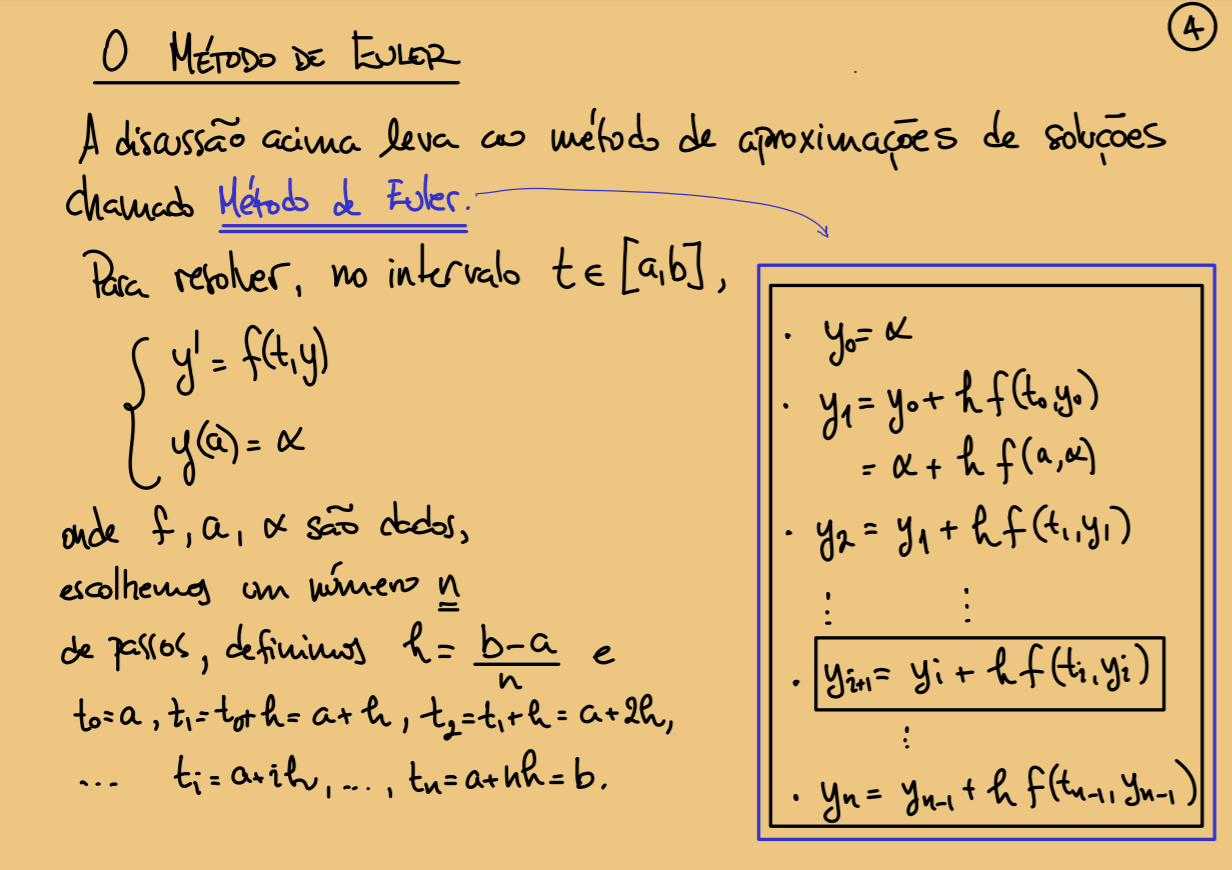 4
O MÉTODO DE EULER
A discussão acima leva ao método de aproximações de soluções
chamado Método de Euler.
Para resolver, no intervalo t ∈ [a,b],
{ y' = f(t,y)
y(a) = α
onde f, a, α são dados,
escolhemos um número n
de passos, definimos h = (b-a)/n e
t₀=a, t₁=t₀+h=a+h, t₂=t₁+h=a+2h,
... tᵢ=a+ih, ..., tₙ=a+nh=b.
· y₀=α
· y₁=y₀+h f(t₀,y₀)
= α+h f(a,α)
· y₂=y₁+h f(t₁,y₁)
⋮ ⋮
· yᵢ₊₁=yᵢ+h f(tᵢ,yᵢ)
⋮
· yₙ=yₙ₋₁+h f(tₙ₋₁,yₙ₋₁)